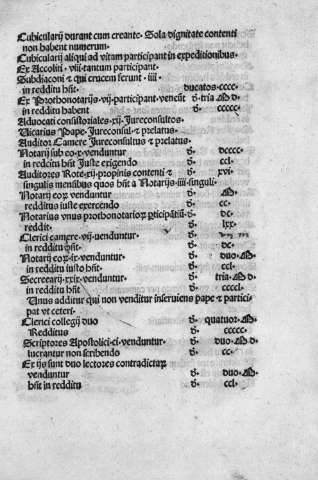 Cubicularij durant cum creante. Sola dignitate contenti
non habent numerum.
Cubicularij aliqui ad vitam participant in expeditionibus.
Ex Accolitis viij tantum participant.
Subdiaconi & qui crucem ferunt. iiij.
in redditu hñt. ducatos. cccc.
Ex Prothonotarijs. vij. participant. veneunt d. tria. M D.
in redditu habent d. ccccc.
Aduocati consistoriales. xij. Jureconsultos.
Uicarius Pape. Jureconsul. & prelatus.
Auditor Camere Jureconsultus & prelatus.
Notarij sub eo. x. venduntur d. dcccc.
in redditu hñt Juste exigendo d. ccl.
Auditores Rote. xij. propinis contenti & d. xvi.
singulis mensibus quos hñt a Notarijs. iiij. singuli.
Notarij eorum venduntur d. M.
redditus iuste exercendo d. cc.
Notarius vnus prothonotariorum d. dc.
reddit. d. lxx.
Clerici camere. vij. venduntur. d.
in redditu hñt. d. dc.
Notarij eorum. ix. venduntur d. duo. M.
in redditu iusto hñt. d. ccl.
Secretarij. xxix. venduntur d. tria. M D.
in redditu hñt d. ccccl.
Unus additur qui non venditur inseruiens pape & partici-
pat vt ceteri.
Clerici collegij duo d. quatuor. M.
Redditus d. ccccc.
Scriptores Apostolici. ci. venduntur. d. duo. M D.
lucrantur non scribendo d. cc.
Ex ijs sunt duo lectores contradictarum
venduntur d. duo. M D.
hñt in redditu d. ccl.